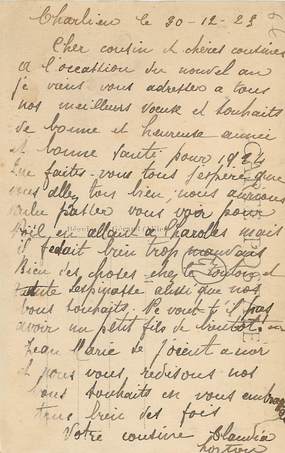 Charlieu le 30-12-23
Cher cousin et chères cousines
a l'occassion du nouvel an
je vans vous adresser a tous
nos meilleurs voeux et souhaits
de bonne et heureuse année
et bonne santé pour 1924
Que faites-vous tous j'espère que
vous allez tous bien, nous aurions
voulu passer vous voir pour
Noël en allant a mais
il fedait bien trop mauvais
Bien des choses chez le et
tante Lespinasse ainsi que nos
bons souhaits. Ne vont-t'il pas
avoir un petit fils de bientot.
Jean Marie de
et pour vous, redisons nos
bons souhaits en vous
tous bien des fois
Votre cousine Claudia